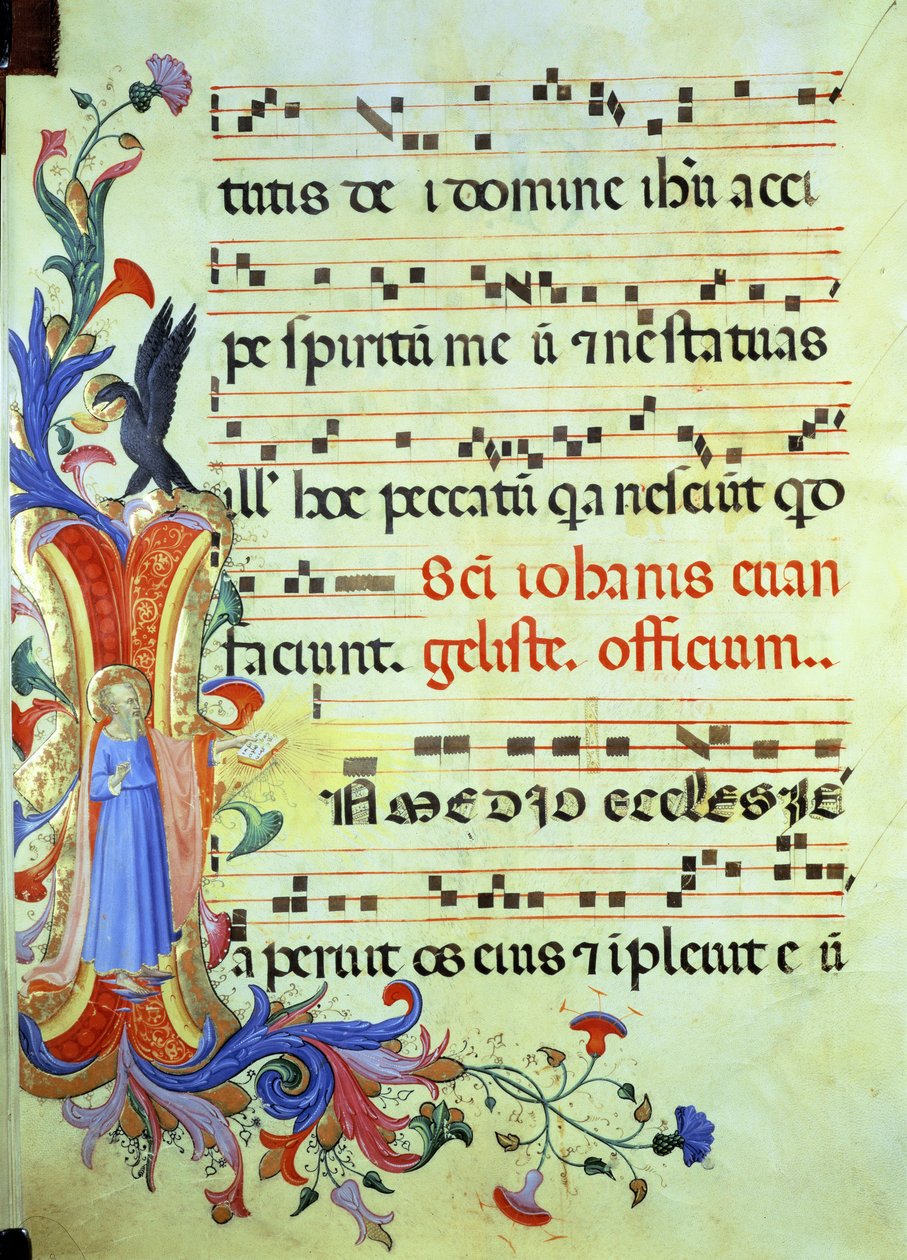 tutis de i domine ihū acci
pe spiritū me ū ⁊ ne statuas
ill' hoc peccatū qa nesciūt qd
faciunt. Scī iohanis euan
geliste. officium..
N MEDIO ECCLESIE
aperuit os eius ⁊ ipleuit e ū